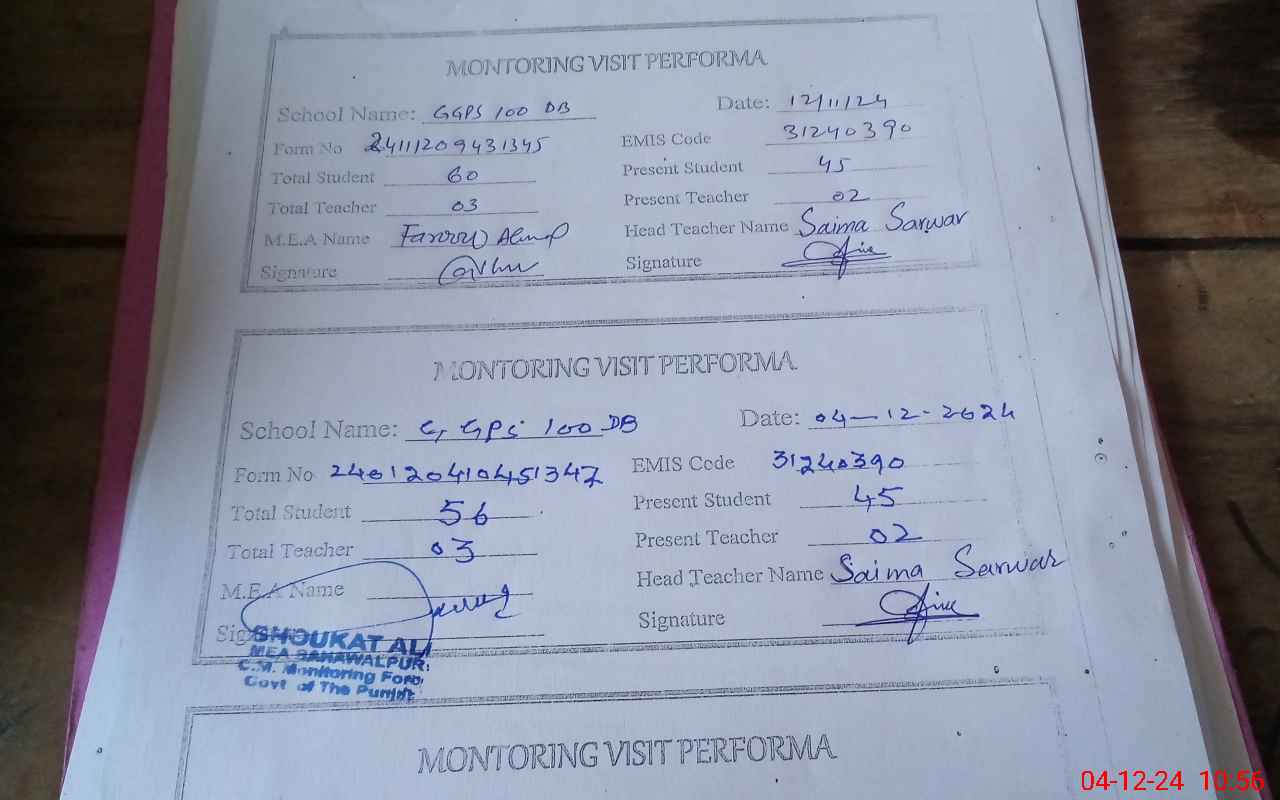 MONTORING VISIT PERFORMA
School Name: GGPS 100 DB Date: 12/11/24
Form No 2411120943 1345 EMIS Code 31240390
Total Student 60 Present Student 45
Total Teacher 03 Present Teacher 02
M.E.A Name Farooq Ahmad Head Teacher Name Saima Sarwar
Signature Signature
MONTORING VISIT PERFORMA
School Name: G, GPS 100 DB Date: 04-12-2024
Form No 240120410451347 EMIS Code 31240390
Total Student 56 Present Student 45
Total Teacher 03 Present Teacher 02
M.E.A Name Head Teacher Name Saima Sarwar
Signature
SHOUKAT ALI
MEA BAHAWALPUR
C.M. Monitoring Force
Govt of The Punjab
MONTORING VISIT PERFORMA
04-12-24 10:56